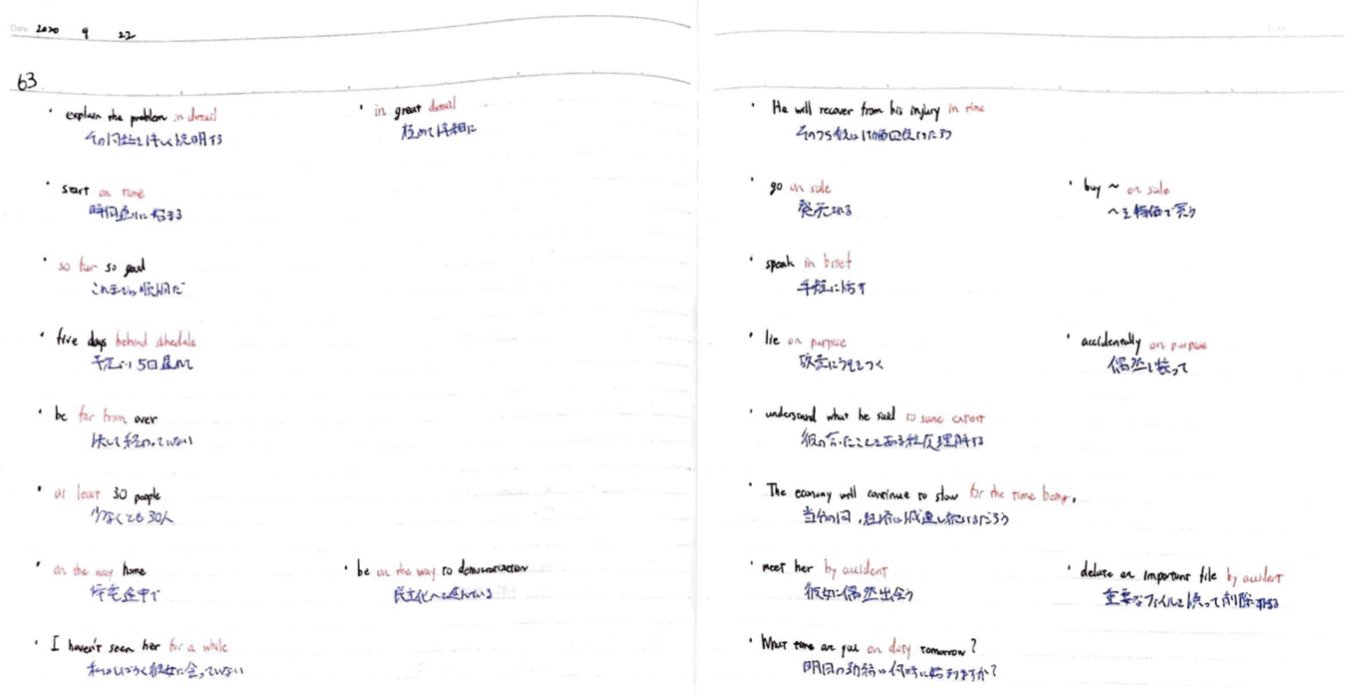 Date 2020 9 22
63
・explain the problem in detail
その問題を詳しく説明する
・in great detail
極めて詳細に
・start on time
時間通りに始まる
・so far so good
これまでは順調だ
・five days behind schedule
予定より5日遅れて
・be far from over
決して終わっていない
・at least 30 people
少なくとも30人
・on the way home
帰宅途中で
・be on the way to democratization
民主化へと進んでいる
・I haven't seen her for a while
私はしばらく彼女に会っていない
・He will recover from his injury in time
そのうち彼は
・go on sale
発売される
・buy ~ on sale
～を特価で買う
・speak in brief
手短に話す
・lie on purpose
故意にうそをつく
・accidentally on purpose
偶然を装って
・understand what he said to some extent
彼の言ったことをある程度理解する
・The economy will continue to slow for the time being.
当分の間、経済は減速し続けるだろう
・meet her by accident
彼女に偶然出会う
・delete an important file by accident
重要なファイルを誤って削除する
・What time are you on duty tomorrow?
明日の勤務は何時に始まりますか?